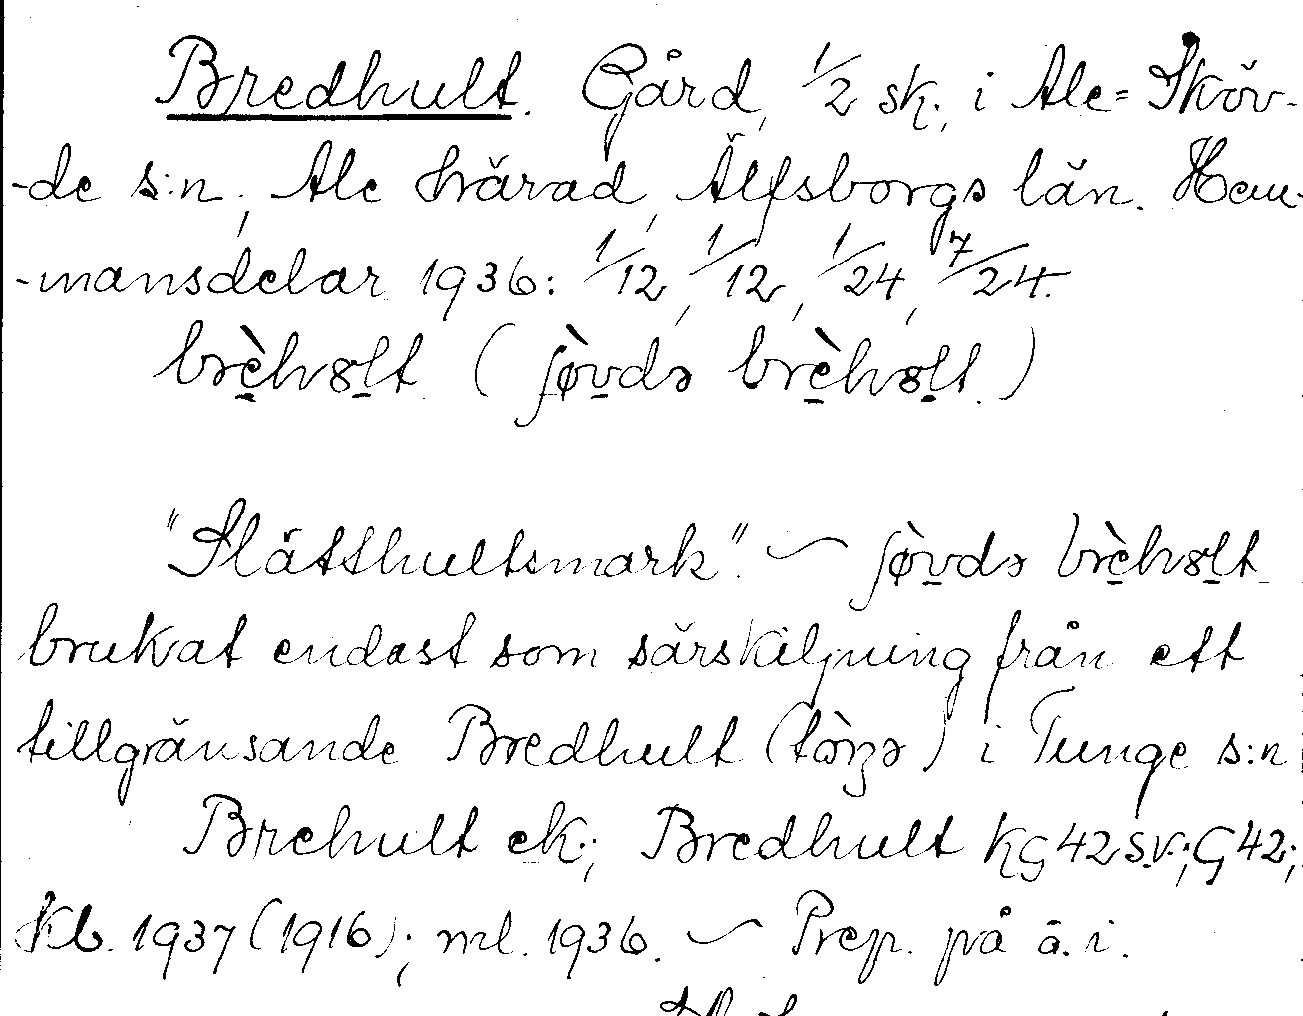 Bredhult. Gård, 1/2 sk., i Ale-Sköv-
-de s:n, Ale härad, Älfsborgs län. Hem-
-mansdelar 1936: 1/12, 1/12, 1/24, 7/24.
brèhꝏlt (ʃøvdə brèhꝏlt.)
"Slätthultsmark". ~ ʃøvdə brèhꝏlt
brukat endast som särskiljning från ett
tillgränsande Bredhult (tòŋə) i Tunge s:n
Brehult ek.; Bredhult KG 42 sv.; G 42;
kb. 1937 (1916); ml. 1936. ~ Prep. på ä. i.